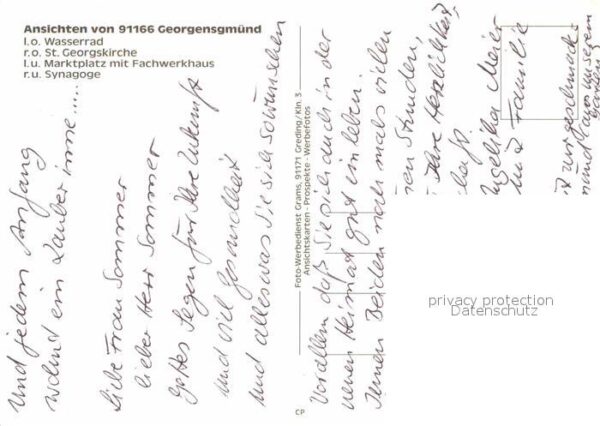 Ansichten von 91166 Georgensgmünd
l.o. Wasserrad
r.o. St. Georgskirche
l.u. Marktplatz mit Fachwerkhaus
r.u. Synagoge
Und jedem Anfang
wohnt ein Zauber inne.....
Liebe Frau Sommer
lieber Herr Sommer
Gottes Segen für Ihre Zukunft
und viel Gesundheit
und alles was Sie sich so wünschen
Foto-Werbedienst Grams, 91171 Greding/Kln. 3
Ansichtskarten - Prospekte - Werbefotos
CP
Vor allem daß Sie sich auch in der
neuen Heimat gut einleben.
Ihnen Beiden nochmals vielen
Stunden,
Ihre Herzlichkeit
Angelika Meier
und Familie
privacy protection
Datenschutz